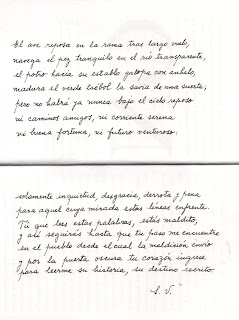 El ave reposa en la rama tras largo vuelo,
navega el pez tranquilo en el río transparente,
el potro hacia su establo galopa con anhelo,
madura el verde trébol la savia de una suerte;
pero no habrá ya nunca bajo el cielo reposo
ni caminos amigos, ni corriente serena
ni buena fortuna, ni futuro venturoso.
solamente inquietud, desgracia, derrota y pena
para aquel cuya mirada estas líneas enfrente.
Tú que lees estas palabras, estás maldito,
y así seguirás hasta que tu paso me encuentre
en el pueblo desde el cual la maldición envío
y por la puerta oscura tu corazón ingrese
para leerme su historia, su destino escrito